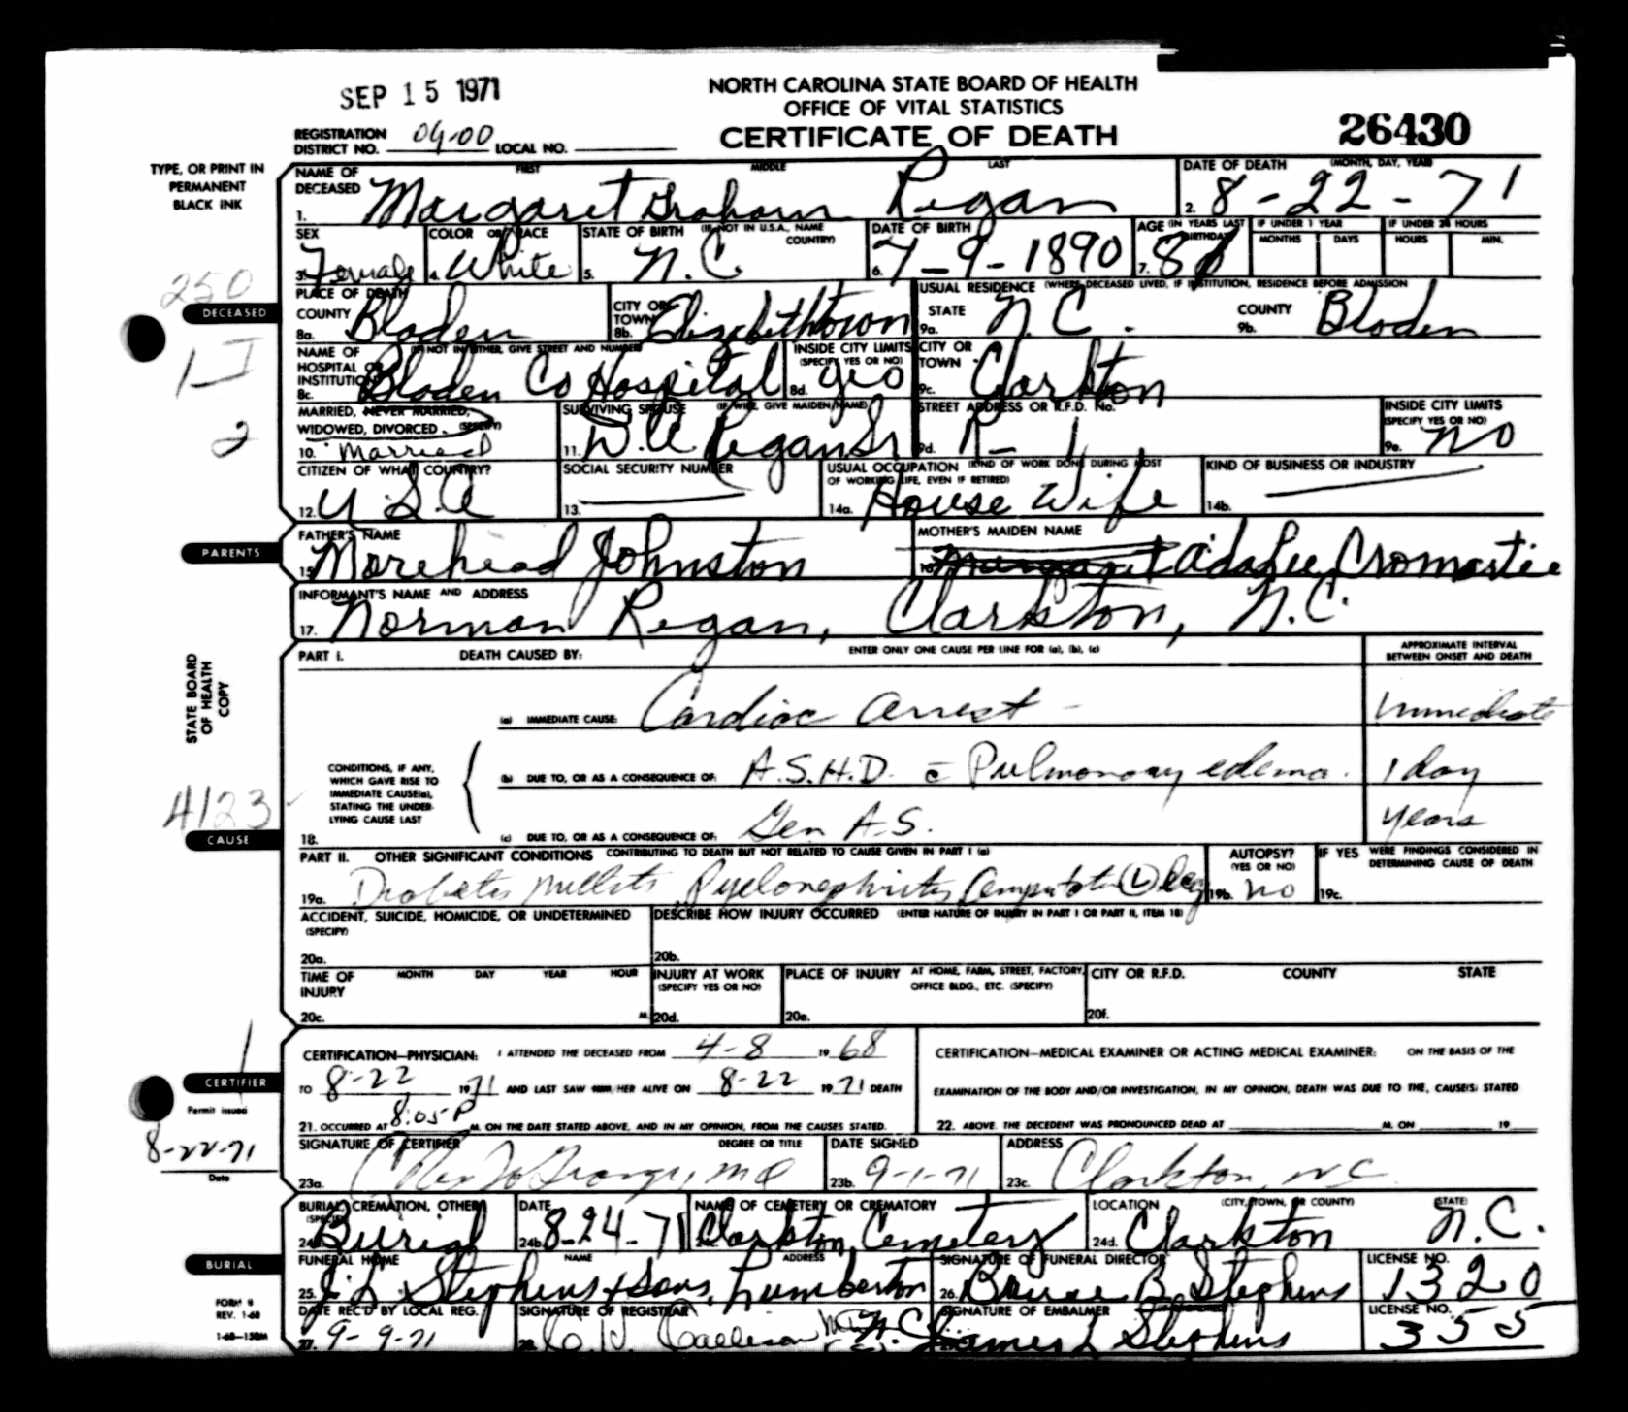 SEP 15 1971
NORTH CAROLINA STATE BOARD OF HEALTH
OFFICE OF VITAL STATISTICS
CERTIFICATE OF DEATH
26430
REGISTRATION DISTRICT NO. 09.00 LOCAL NO.
TYPE, OR PRINT IN PERMANENT BLACK INK
NAME OF DECEASED FIRST MIDDLE LAST
1. Margaret Graham Regan
DATE OF DEATH (MONTH, DAY, YEAR)
2. 8-22-71
SEX 3. Female
COLOR OR RACE 4. White
STATE OF BIRTH (IF NOT IN U.S.A., NAME COUNTRY) 5. N.C.
DATE OF BIRTH 6. 7-9-1890
AGE (IN YEARS LAST BIRTHDAY) 7. 81
IF UNDER 1 YEAR MONTHS DAYS
IF UNDER 24 HOURS HOURS MIN.
250
DECEASED
1
2
PLACE OF DEATH
COUNTY 8a. Bladen
CITY OR TOWN 8b. Elizabethtown
USUAL RESIDENCE (WHERE DECEASED LIVED, IF INSTITUTION, RESIDENCE BEFORE ADMISSION
STATE 9a. N.C.
COUNTY 9b. Bladen
NAME OF HOSPITAL OR INSTITUTION (IF NOT IN EITHER, GIVE STREET AND NUMBER)
8c. Bladen Co Hospital
INSIDE CITY LIMITS (SPECIFY YES OR NO) 8d. yes
CITY OR TOWN 9c. Clarkton
MARRIED, NEVER MARRIED, WIDOWED, DIVORCED (SPECIFY)
10. Married
SURVIVING SPOUSE (IF WIFE, GIVE MAIDEN NAME)
11. D.A Regan Sr
STREET ADDRESS OR R.F.D. No.
9d. R-1
INSIDE CITY LIMITS (SPECIFY YES OR NO)
9e. NO
CITIZEN OF WHAT COUNTRY?
12. U.S.A
SOCIAL SECURITY NUMBER
13.
USUAL OCCUPATION (KIND OF WORK DONE DURING MOST OF WORKING LIFE, EVEN IF RETIRED)
14a. House Wife
KIND OF BUSINESS OR INDUSTRY
14b.
PARENTS
FATHER'S NAME
15. Morehead Johnston
MOTHER'S MAIDEN NAME
16. Margaret Ada Lee Cromartie
INFORMANT'S NAME AND ADDRESS
17. Norman Regan, Clarkton, N.C.
STATE BOARD OF HEALTH COPY
PART I. DEATH CAUSED BY: ENTER ONLY ONE CAUSE PER LINE FOR (a), (b), (c)
APPROXIMATE INTERVAL BETWEEN ONSET AND DEATH
(a) IMMEDIATE CAUSE: Cardiac arrest - Immediate
CONDITIONS, IF ANY, WHICH GAVE RISE TO IMMEDIATE CAUSE(a), STATING THE UNDERLYING CAUSE LAST
(b) DUE TO, OR AS A CONSEQUENCE OF: A.S.H.D. c̄ Pulmonary edema. 1 day
(c) DUE TO, OR AS A CONSEQUENCE OF: Gen A.S. years
18.
4123
CAUSE
PART II. OTHER SIGNIFICANT CONDITIONS CONTRIBUTING TO DEATH BUT NOT RELATED TO CAUSE GIVEN IN PART I (a)
19a. Diabetes Mellitis Pyelonephritis Amputation (L) leg
AUTOPSY? (YES OR NO) 19b. no
IF YES WERE FINDINGS CONSIDERED IN DETERMINING CAUSE OF DEATH
19c.
ACCIDENT, SUICIDE, HOMICIDE, OR UNDETERMINED (SPECIFY)
20a.
DESCRIBE HOW INJURY OCCURRED (ENTER NATURE OF INJURY IN PART I OR PART II, ITEM 18)
20b.
TIME OF INJURY MONTH DAY YEAR HOUR
20c. M.
INJURY AT WORK (SPECIFY YES OR NO)
20d.
PLACE OF INJURY AT HOME, FARM, STREET, FACTORY, OFFICE BLDG., ETC. (SPECIFY)
20e.
CITY OR R.F.D. COUNTY STATE
20f.
1
CERTIFIER
Permit issued
8-22-71
Date
CERTIFICATION—PHYSICIAN: I ATTENDED THE DECEASED FROM 4-8 19 68
TO 8-22 19 71 AND LAST SAW HIM/HER ALIVE ON 8-22 19 71 DEATH
21. OCCURRED AT 8:05 P M. ON THE DATE STATED ABOVE, AND IN MY OPINION, FROM THE CAUSES STATED.
CERTIFICATION—MEDICAL EXAMINER OR ACTING MEDICAL EXAMINER: ON THE BASIS OF THE
EXAMINATION OF THE BODY AND/OR INVESTIGATION, IN MY OPINION, DEATH WAS DUE TO THE, CAUSE(S) STATED
22. ABOVE. THE DECEDENT WAS PRONOUNCED DEAD AT M. ON 19
SIGNATURE OF CERTIFIER DEGREE OR TITLE
23a. MD
DATE SIGNED
23b. 9-1-71
ADDRESS
23c. Clarkton, NC
BURIAL
BURIAL, CREMATION, OTHER (SPECIFY)
24a. Burial
DATE
24b. 8-24-71
NAME OF CEMETERY OR CREMATORY
Clarkton Cemetery
LOCATION (CITY, TOWN, OR COUNTY) (STATE)
24d. Clarkton N.C.
FUNERAL HOME NAME ADDRESS
25. J.L Stephens & Sons, Lumberton
SIGNATURE OF FUNERAL DIRECTOR
26. Bruce B. Stephens
LICENSE NO.
1320
FORM 9
REV. 1-68
1-68—150M
DATE REC'D BY LOCAL REG.
27. 9-9-71
SIGNATURE OF REGISTRAR
28.
N.C.
SIGNATURE OF EMBALMER
James L Stephens
LICENSE NO.
355